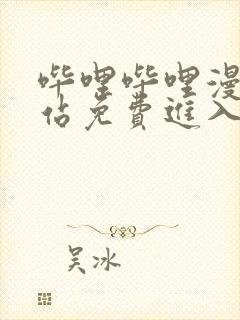 哔哩哔哩漫
佔免费進入
吴冰